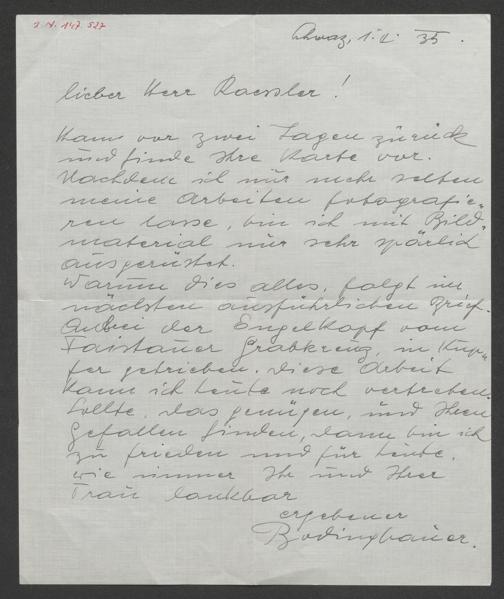 J.N. 147.527
Schwaz, 1. 2. 35.
lieber Herr Roessler!
Kam vor zwei Tagen zurück
und finde Ihre Karte vor.
Nachdem ich nur mehr selten
meine Arbeiten fotografie-
ren lasse, bin ich mit Bild-
material nur sehr spärlich
ausgerüstet.
Warum dies alles, folgt im
nächsten ausführlichen Brief.
Anbei der Engelkopf vom
Faistauer Grabkreuz, in Kup-
fer getrieben. Diese Arbeit
kann ich heute noch vertreten.
Sollte, das genügen, und Ihren
Gefallen finden, dann bin ich
zu frieden und für heute,
wie immer Ihr und Ihrer
Frau dankbar
ergebener